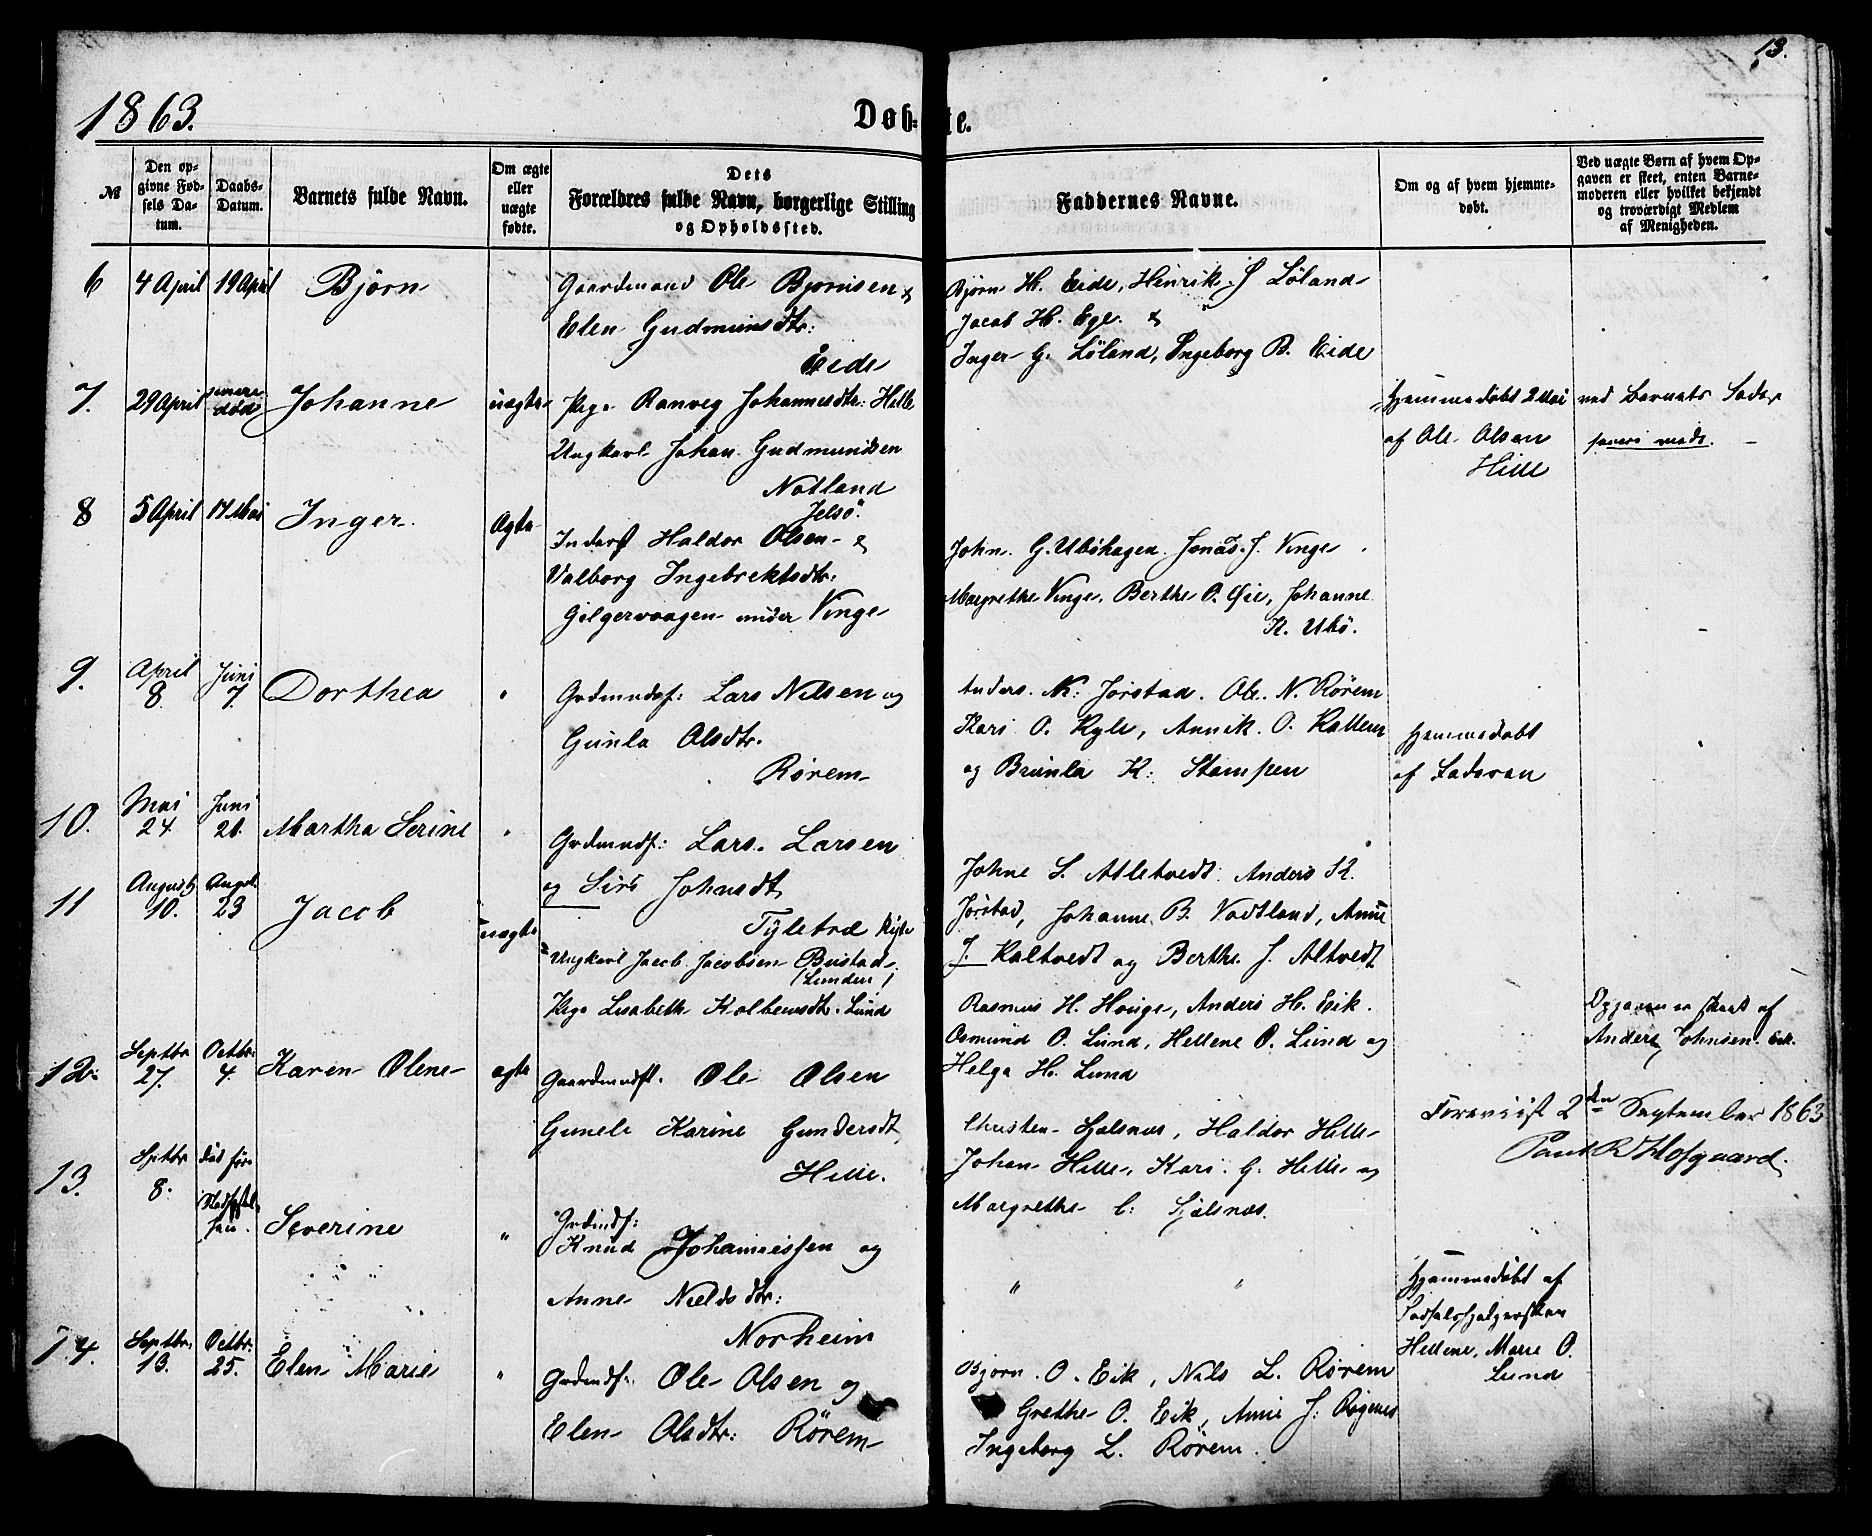 13.
1863.
Døb-
te.
№
Den op-
givne Fød-
sels Da-
tum.
Daabs-
Datum.
Barnets fulde Navn.
Om ægte
eller
uægte
fødte.
Dets
Forældres fulde Navn, borgerlige Stilling
og Opholdssted.
Faddernes Navne.
Om og af hvem hjemme-
døbt.
Ved uægte Børn af hvem Op-
gaven er skeet, enten Barne-
moderen eller hvilket bekjendt
og troværdigt Medlem
af Menigheden.
6 4 April 19 April Bjørn
Gaardmand Ole Bjørnsen &
Elen Gudmundsdtr:
Eide
Bjørn H. Eide, Henrik J Løland
Jacob H. Ege &
Inger G. Løland, Ingeborg B. Eide
7. 29 April død Johanne uægte
Pige Ranveg Johannesdtr: Hille
Ungkarl Johan Gudmundsen
Natland
Jelsø.
Hjemmedøbt 2 Mai
af Ole Olsen
Hille
ved Barnets
8 5 April 17 Mai Inger Ægte
Inderst Haldor Olsen &
Valborg Ingebrektsdtr:
Gilgervaagen under Vinge
John G. Ubøhagen Jonas J. Vinge
Margrethe Vinge, Berthe O. Øie, Johanne
K. Ubø.
9. April 8. Juni 7. Dorthea "
Grdmndsf: Lars Nilsen og
Gunla Olsdtr.
Rørem
Anders N: Jørstad. Ole N. Rørem
Kari O. Kyle, Annik O.
og Brunla K: Stampen
Hjemmedøbt
af Faderen
10. Mai 24. Juni 21. Martha Serine "
Grdmndsf: Lars Larsen
og Siri Johnsdt,
Tyletræ
Johne S. Atletvedt Anders K.
Jørstad, Johanne B. Vadtland, Anne
J. Kaltvedt og Berthe J. Altvedt
11 August 10. August 23 Jacob uægte
Ungkarl Jacob Jacobsen Bustad
(Lunden)
Pige Lisabeth Kolbensdtr. Lund
Rasmus H. Houge, Anders H. Eik.
Osmund O. Lund, Hellene O. Lund og
Helga H. Lund
Opgaven er skeet af
Anders Johnsen Eik.
12. Septbr 27. Octbr: 4. Karen Olene ægte
Gaardmndsf. Ole Olsen
Gunele Karine Gundersdt,
Hille.
Christen Hjelsnæs, Haldor Hille
Johan Hille, Kari G. Hille og
Margrethe C: Hjelsnæs.
Foreviist 2den September 1863
Paul R Hofgaard.
13. Septbr 8. død før Severine "
Grdmdsf:
Knud Johannessen og
Anne Nielsdtr:
Norheim
" "
Hjemmedøbt af
Hellene Marie O.
Lund
14. Septbr. 13. Octbr: 25. Elen Marie "
Grdmdsf: Ole Olsen og
Elen Olsdtr: Rörem
Bjørn O. Eik, Nils L. Rørem
Grethe O. Eik, Anne J:
Ingeborg L. Rørem.